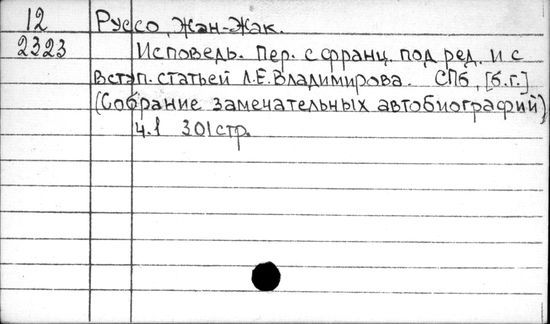 12 Руссо, Жан-Жак.
2323 Исповедь. Пер. с франц. под ред. и с
вступ. статьей Л.Е. Владимирова. СПб, [б.г.]
(Собрание замечательных автобиографий)
ч.1 301 стр.